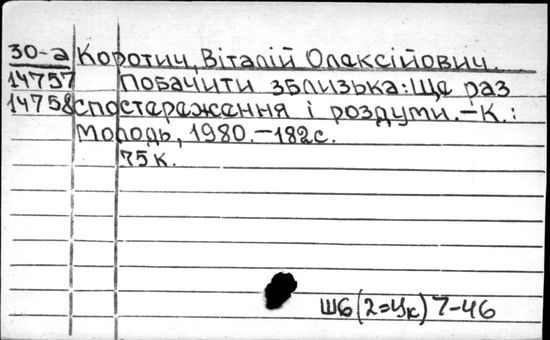 30-а Коротич, Віталій Олексійович.
14757 Побачити зблизька: Ще раз
14758 спостереження і роздуми. – К.:
Молодь, 1980. – 182 с.
75 к.
Ш6(2=Ук) 7-46